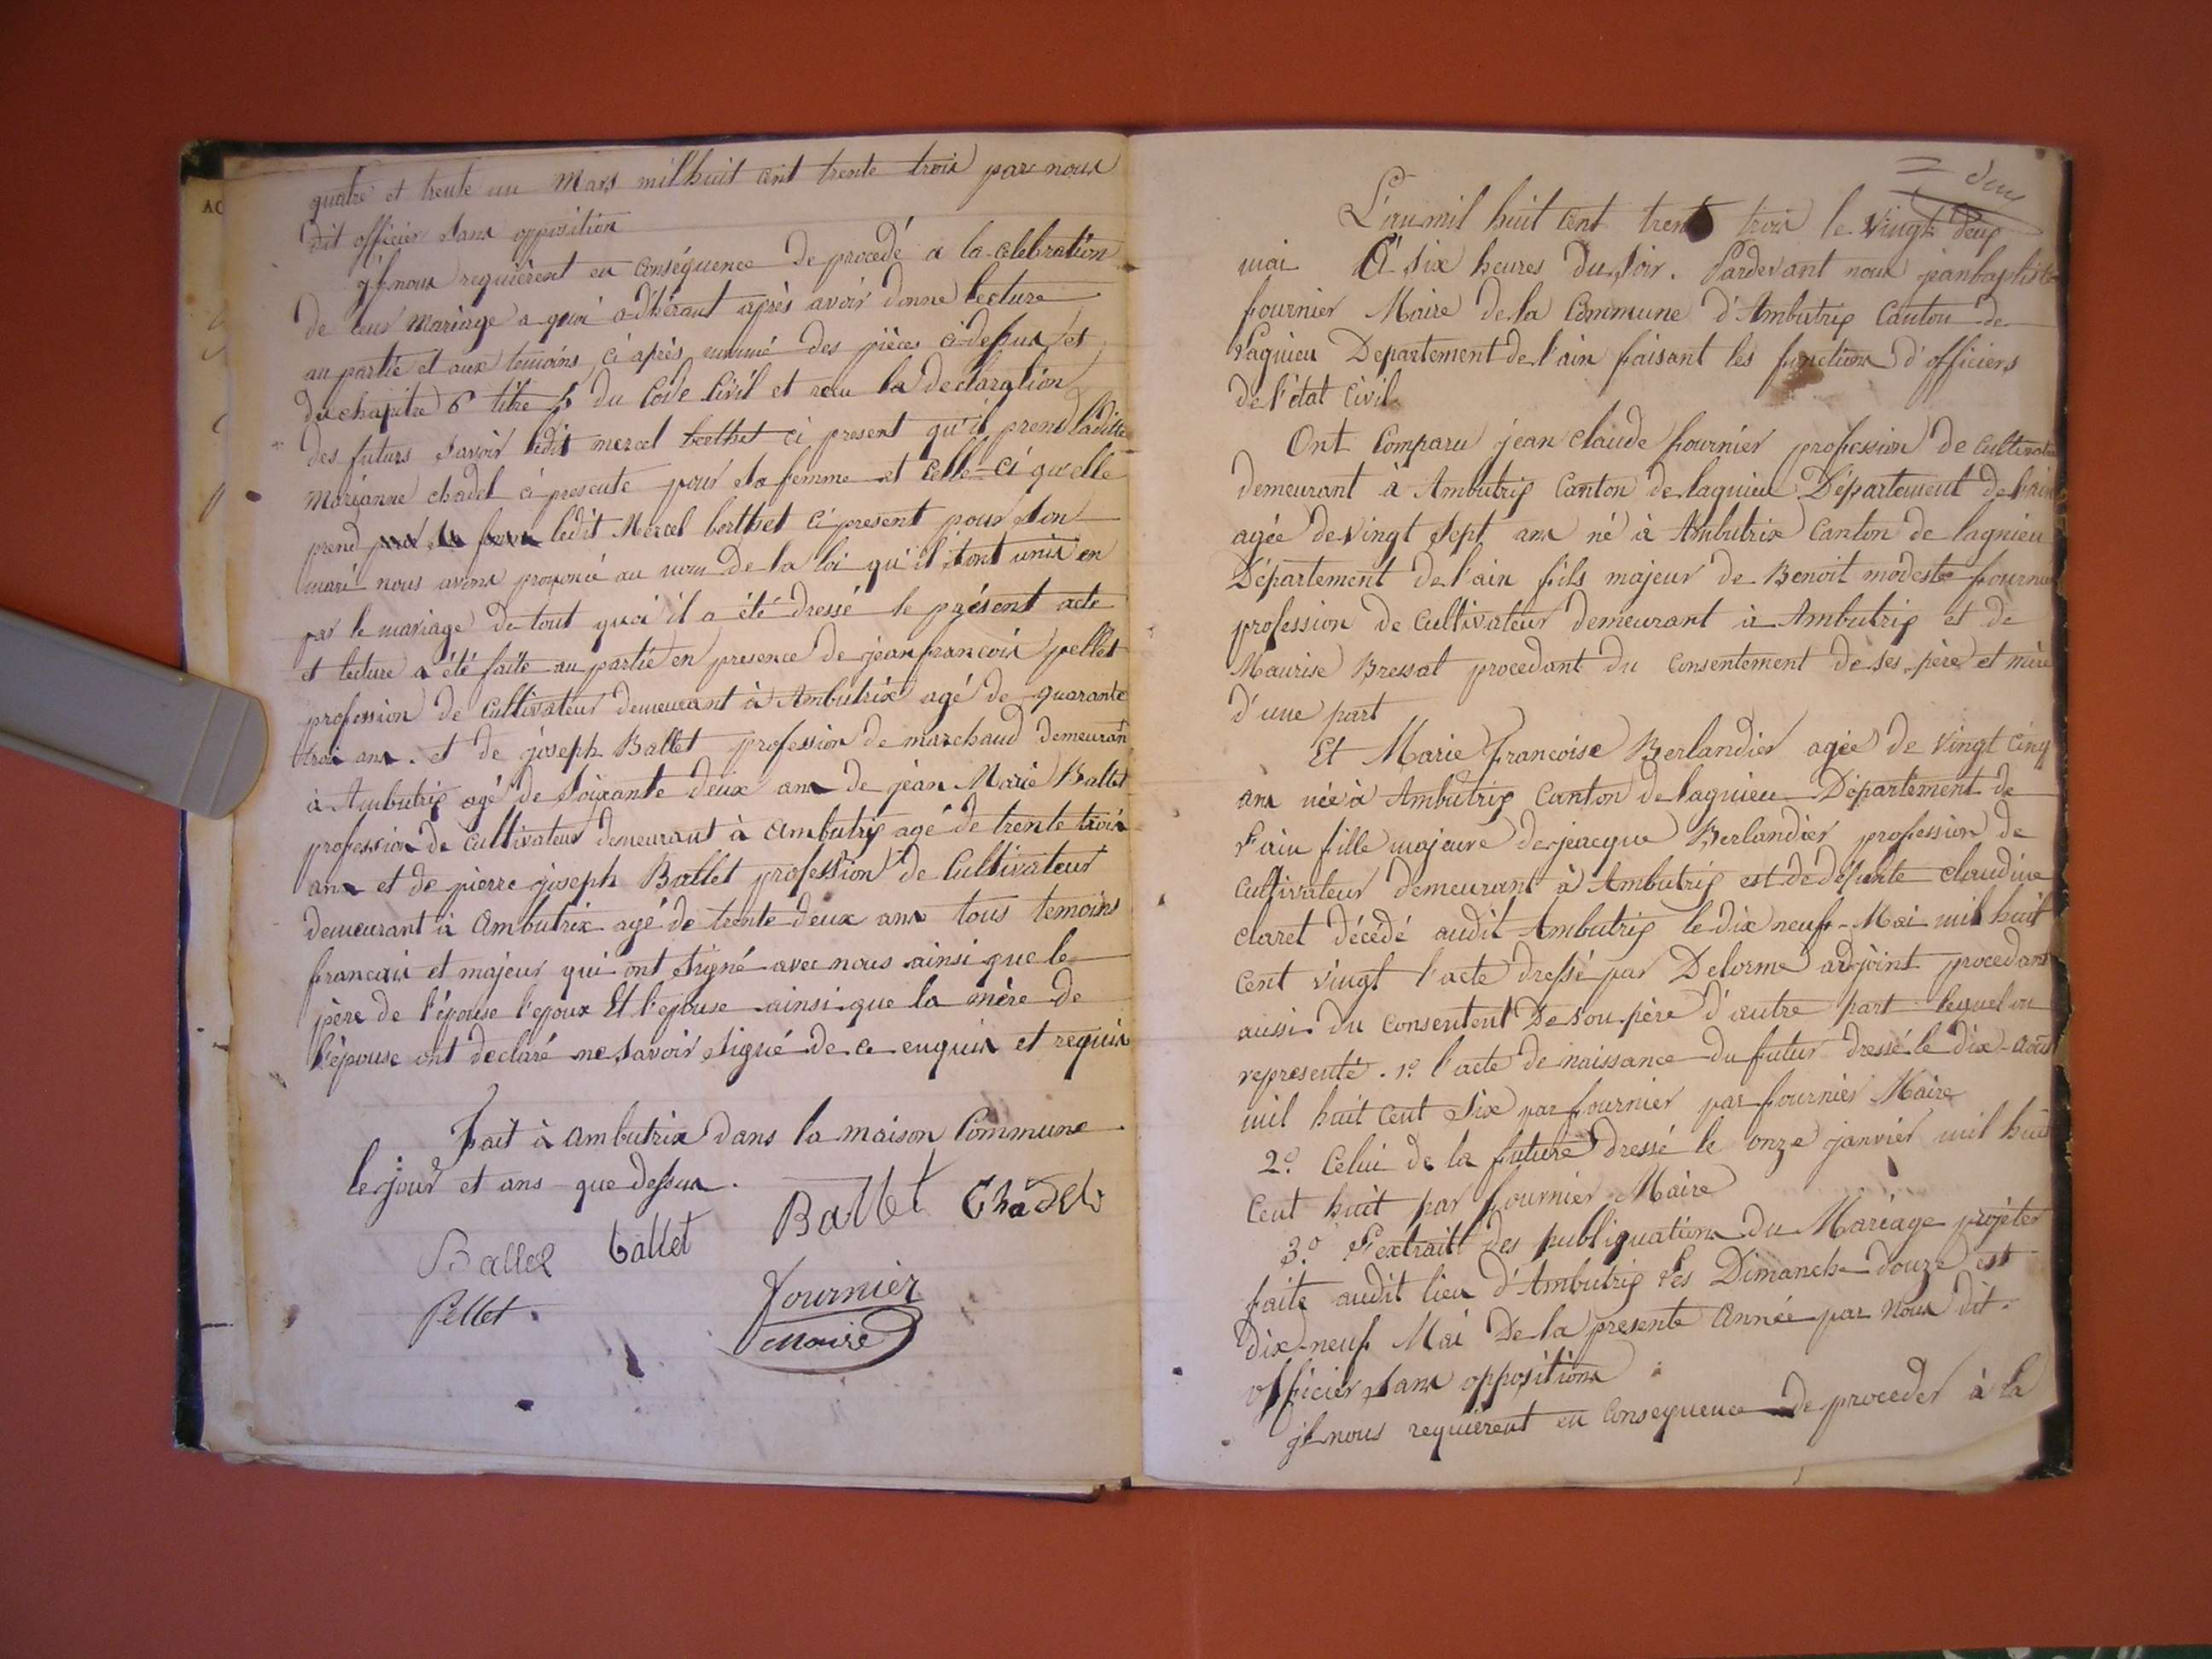 quatre et trente un Mars mil huit cent trente trois par nous
dit officier sans opposition
il nous requièrent en conséquence de procedé a la celebration
de leur mariage a quoi adhérant après avoir donne lecture
au partie et aux temoins ci après nommé des pièces ci-dessus et
du chapitre 6 titre 5 du Code Civil et recu la declaration
des futurs savoir ledit mercel berthet ci present qu'il prend ladite
Marianne chadel ci presente pour sa femme et celle-ci qu'elle
prend pour sa femme ledit Mercel berthet ci present pour son
mari nous avons prononcé au nom de la loi qu'il sont unis en
par le mariage de tout quoi il a été dressé le présent acte
et lecture a été faite au partie en presence de jean francois pellet
profession de cultivateur demeurant à Ambutrix agé de quarante
trois ans. et de joseph Ballet profession de marchand demeurant
à Ambutrix agé de soixante deux ans de jean Marie Ballet
profession de cultivateur demeurant à ambutrix agé de trente trois
ans et de pierre joseph Ballet profession de Cultivateur
demeurant à Ambutrix agé de trente deux ans tous temoins
francais et majeur qui ont signé avec nous ainsi que le
père de l'épouse l'epoux Et l'epouse ainsi que la mère de
l'épouse ont declaré ne savoir signé de ce enquis et requis
Fait à ambutrix dans la maison Commune
le jour et ans que dessus.
Ballet ballet Ballet Chadel
Pellet. Fournier
Maire
2 deux
L'an mil huit cent trente trois le vingt deux
mai A six heures du soir. Pardevant nous jean baptiste
fournier Maire de la Commune d'Ambutrix Canton de
Lagnieu Departement de l'ain faisant les fonctions d'officiers
de l'état Civil
Ont Comparu jean claude fournier profession de cultivateur
demeurant à Ambutrix Canton de lagnieu Département de l'ain
agée de vingt sept ans né à Ambutrix Canton de lagnieu
Département de l'ain fils majeur de Benoit modeste fournier
profession de Cultivateur demeurant à Ambutrix et de
Maurise Bressat procedant du consentement de ses père et mère
d'une part
Et Marie Francoise Berlandier agée de vingt cinq
ans née à Ambutrix Canton de lagnieu Département de
l'ain fille majeure de jeacque Berlandier profession de
Cultivateur demeurant à Ambutrix est de défunte claudine
claret décédé audit Ambutrix le dix neuf Mai mil huit
cent vingt l'acte dressé par Delorme adjoint procedant
aussi du consentent De son père d'autre part lequel on
representé. 1º l'acte de naissance du futur dressé le dix aout
mil huit cent six par fournier par fournier Maire
2º. Celui de la future dressé le onze janvier mil huit
Cent huit par fournier Maire
3.º l'extrait des publiquations du Mariage projéter
faite audit lieu d'Ambutrix Les Dimanche douze est
dix-neuf Mai De la presente Année par Nous dit
officier sans oppositions
il nous requièrent en Consequence de proceder à la